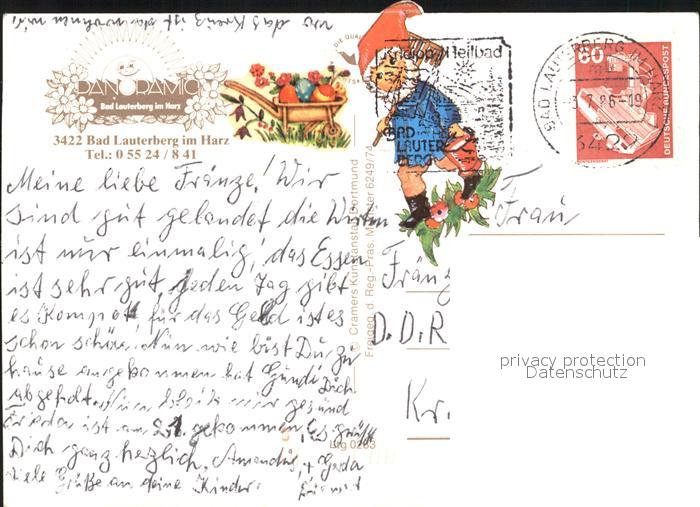 wo das Kreuz ist da wohnen wir
PANORAMIC
Bad Lauterberg im Harz
3422 Bad Lauterberg im Harz
Tel.: 0 55 24 / 8 41
Meine liebe Fränze! Wir
sind gut gelandet die Wirtin
ist nur einmalig, das Essen
ist sehr gut, jeden Tag gibt
es Kompott, für das Geld ist es
schon schön. Nun wie bist Du zu
hause angekommen hat Gündi Dich
abgeholt. Nun gesund
Frieda ist am angekommen, Es grüßt
Dich ganz herzlich, Amandus, + Gerda
viele Grüße an deine Kinder.
DIE QUAL
© Cramers Kunstanstalt Dortmund
Freigeg. d. Reg.-Präs. Münster 6249/7
Lrg 0203
Kneipp-Heilbad
BAD
LAUTER
BERG
BAD LAUTERBERG IM HARZ
86-19
3422
60
DEUTSCHE BUNDESPOST
Frau
Fränz
D.D.R
Kr.
privacy protection
Datenschutz